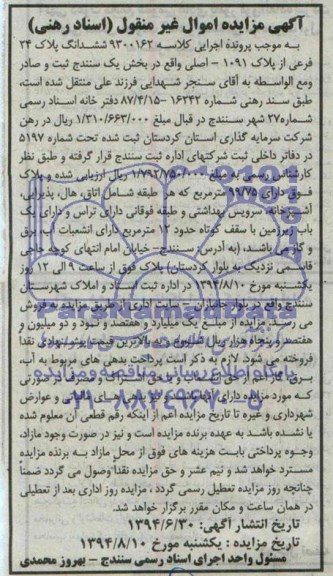 آگهی مزایده اموال غیر منقول (اسناد رهنی)
به موجب پرونده اجرایی کلاسه ۹۳۰۰۱۶۲ ششدانگ پلاک ۲۴
فرعی از پلاک ۱۰۹۱ - اصلی واقع در بخش یک سنندج ثبت و صادر
ومع الواسطه به آقای سنجر شهدایی فرزند علی منتقل شده است،
طبق سند رهنی شماره ۱۶۲۴۲ - ۸۷/۴/۱۵ دفتر خانه اسناد رسمی
شماره ۲۷ شهر سنندج در قبال مبلغ ۱/۳۱۰/۶۶۳/۰۰۰ ریال در رهن
شرکت سرمایه گذاری استان کردستان ثبت شده تحت شماره ۵۱۹۷
در دفاتر داخلی ثبت شرکتهای اداره ثبت سنندج قرار گرفته و طبق نظر
کارشناس رسمی به مبلغ ۱/۷۹۲/۷۵۰/۰۰۰ ریال ارزیابی شده و پلاک
فوق دارای ۹۹/۷۵ مترمربع که هر طبقه شامل اتاق، هال، پذیرایی،
آشپزخانه، سرویس بهداشتی و طبقه فوقانی دارای تراس و دارای یک
باب زیرزمین با سقف کوتاه حدود ۱۲ مترمربع دارای انشعابات آب، برق
و گاز می باشند، (به آدرس سنندج- خیابان امام انتهای کوچه حاجی
قاسمی نزدیک به بلوار کردستان) پلاک فوق از ساعت ۹ الی ۱۲ روز
یکشنبه مورخ ۱۳۹۴/۸/۱۰ در اداره ثبت اسناد و املاک شهرستان
سنندج واقع در بلوار جانبازان - سایت اداری از طریق مزایده به فروش
می رسد. مزایده از مبلغ یک میلیارد و هفتصد و نود و دو میلیون و
هفتصد و پنجاه هزار ریال شروع و به بالاترین قیمت پیشنهادی نقدا
فروخته می شود. لازم به ذکر است پرداخت بدهی های مربوط به آب،
برق، گاز اعم از حق انشعاب و یا حق اشتراک و مصرف در صورتی
که مورد مزایده دارای آنها باشد و نیز بدهی های مالیاتی و عوارض
شهرداری و غیره تا تاریخ مزایده اعم از اینکه رقم قطعی آن معلوم شده
یا نشده باشد به عهده برنده مزایده است و نیز در صورت وجود مازاد،
وجوه پرداختی بابت هزینه های فوق از محل مازاد به برنده مزایده
مسترد خواهد شد و نیم عشر و حق مزایده نقدا وصول می گردد ضمنا
چنانچه روز مزایده تعطیل رسمی گردد ، مزایده روز اداری بعد از تعطیلی
در همان ساعت و مکان مقرر برگزار خواهد شد.
تاریخ انتشار آگهی: ۱۳۹۴/۶/۳۰
تاریخ مزایده : یکشنبه مورخ ۱۳۹۴/۸/۱۰
مسئول واحد اجرای اسناد رسمی سنندج - بهروز محمدی
ParsNamadData
پایگاه اطلاع رسانی مناقصه و مزایده